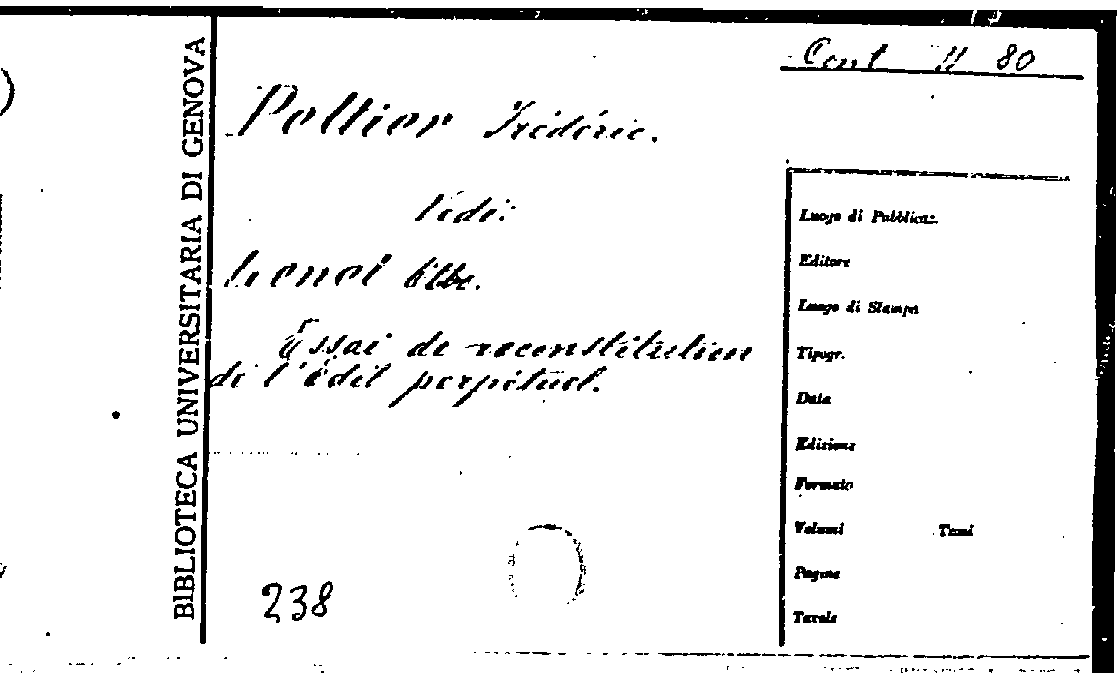 Cont N 80
BIBLIOTECA UNIVERSITARIA DI GENOVA
Peltier Frédéric.
Vedi:
Lenel Otto.
Essai de reconstitution
de l'Édit perpétuel.
238
Luogo di Pubblicaz.
Editore
Luogo di Stampa
Tipogr.
Data
Edizione
Formato
Volumi Tomi
Pagine
Tavole